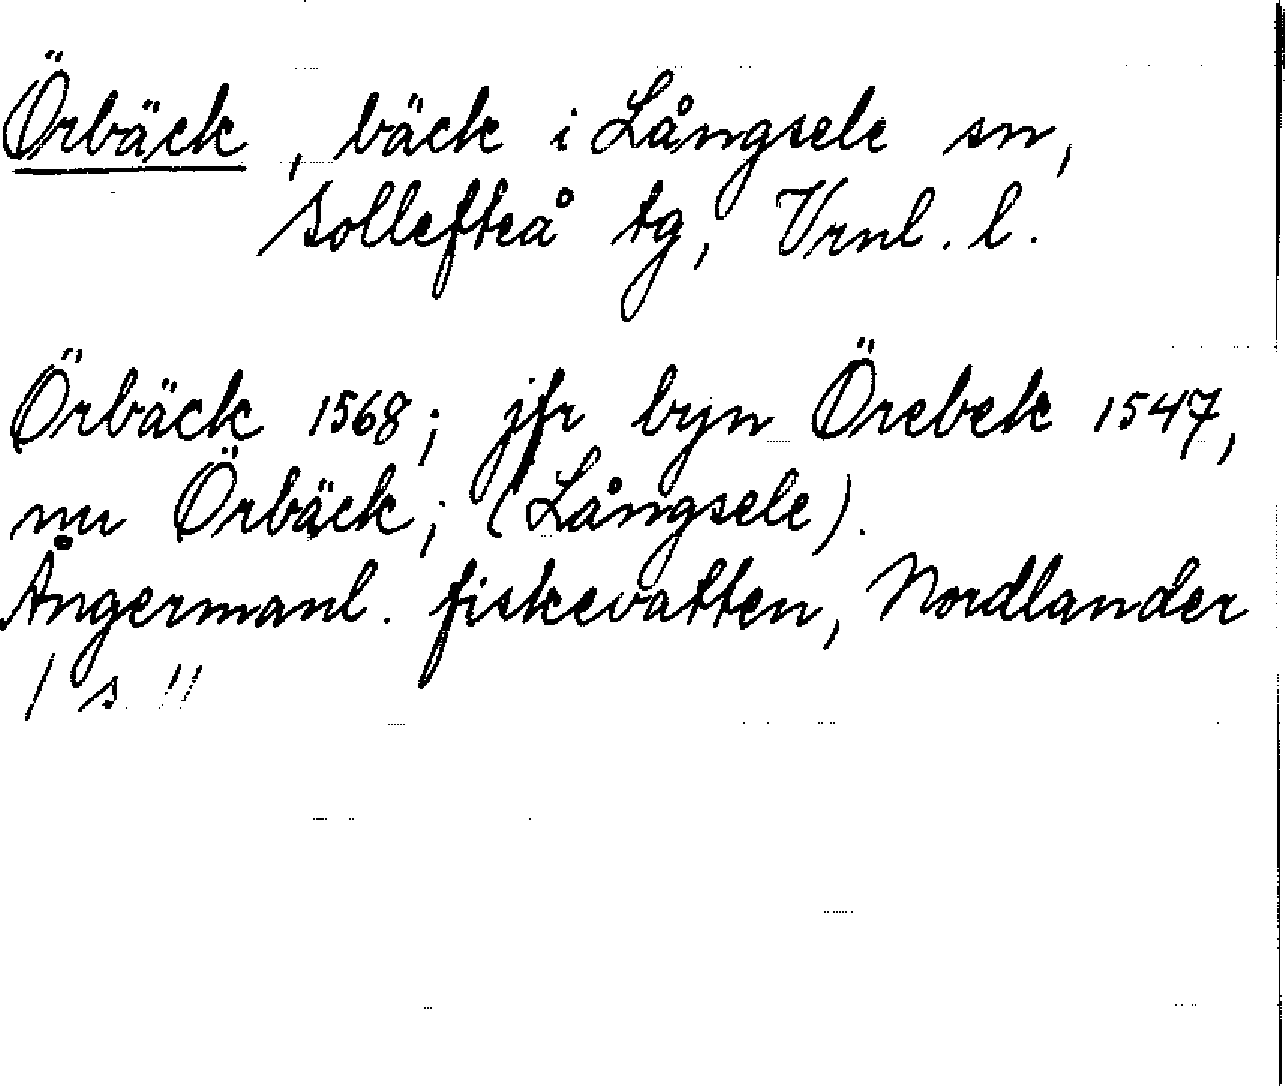 Örbäck, bäck i Långsele sn,
Sollefteå tg, Vrnl. l.
Örbäck 1568; jfr byn Örebek 1547,
nu Örbäck; (Långsele).
Ångermanl. fiskevatten, Nordlander
/ s. 11